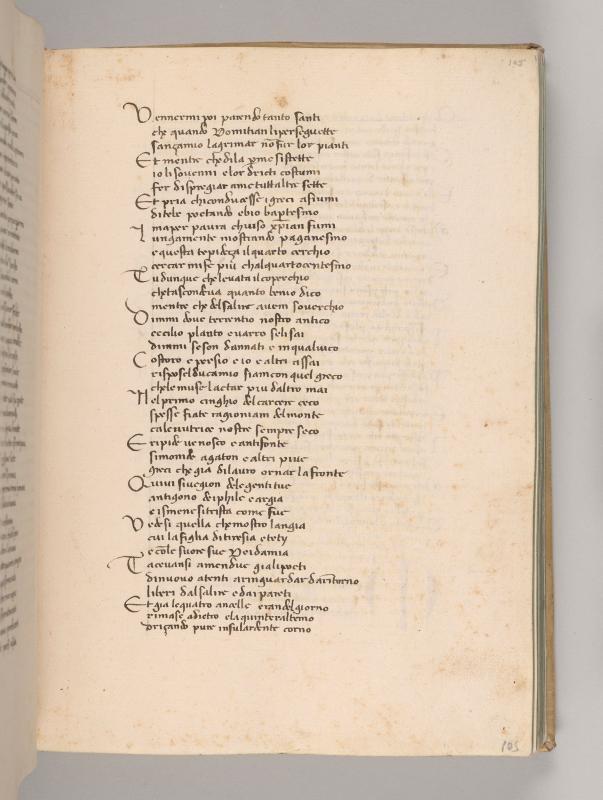 105
Vennermi poi parendo tanto santi
che quando Domitian li perseguette
sançamio lagrimar nõ fur lor pianti
Et mentre che dila p me si stette
io li sovenni e lor dricti costumi
fer dispregiar ame tutt altre sette
Et pria chi conducesse i greci afiumi
di tebe poetando ebio baptesmo
ma per paura chiuso xp̃ian fumi
Lungamente mostrando paganesmo
e questa tepideça il quarto cerchio
cercar mi fe piu chal quarto centesmo
Tu dunque che levata il coperchio
che tascondeva quanto bene io dico
mentre che del salire avem soverchio
Dimmi dove terrentio nostro antico
cecilio plauto e varro se li sai
dimmi se son dannati e in qual vico
Costoro e persio e io e altri assai
rispose l duca mio siam con quel greco
che le muse lactar piu daltro mai
Nel primo cinghio del carcere ceco
spesse fiate ragioniam del monte
cale nutrice nostre sempre seco
Eripide ve nosco e antifonte
simonide agaton e altri piue
greci che gia di lauro ornar la fronte
Quivi si vegion de le genti tue
antigono deiphile e argia
e ismene si trista come fue
Vedesi quella che mostro langia
cui la figlia di tiresia e tety
e cõle suore sue Deidamia
Tacevansi amendue gia li poeti
di nuovo atenti a ringuardar darĩtorno
liberi dal salire e dai pareti
Et gia le quatro ancelle eran del giorno
rimase adietro e la quinter al temo
driçando pure in su lardente corno
105